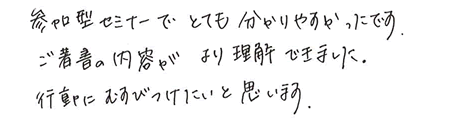 参加型セミナーでとても分かりやすかったです.
ご著書の内容がより理解できました。
行動にむすびつけたいと思います.